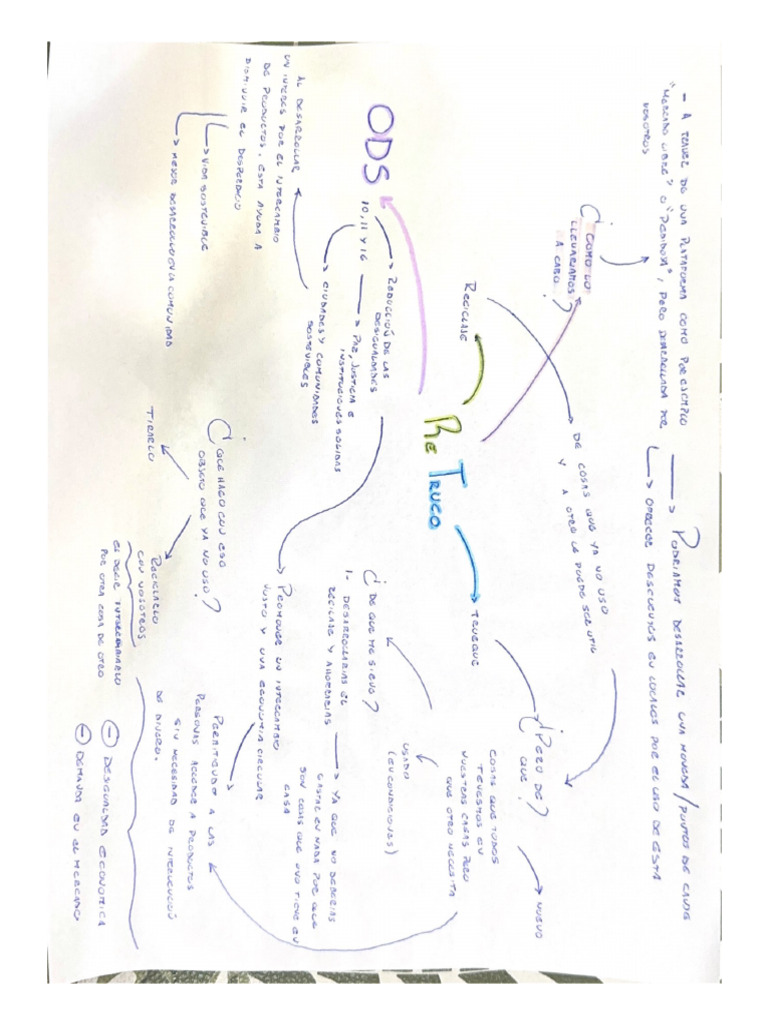 - A TRAVEZ DE UNA PLATAFORMA COMO POR EJEMPLO
"MERCADO LIBRE" O "PEDIDOSYA", PERO DESARROLLADA POR
NOSOTROS
→ PODRIAMOS DESARROLLAR UNA MONEDA / PUNTOS DE CANJE
→ OFRECER DESCUENTOS EN LOCALES POR EL USO DE ESTA
¿COMO LO
LLEVARIAMOS
A CABO?
RECICLAJE
DE COSAS QUE YA NO USO
Y A OTRO LE PUEDE SER UTIL
ReTRUCO
TRUEQUE
¿PERO DE
QUE?
NUEVO
COSAS QUE TODOS
TENEMOS EN
NUESTRAS CASAS PERO
QUE OTRO NECESITA
USADO
(EN CONDICIONES)
¿DE QUE ME SIRVE?
1. DESARROLLARIAS EL
RECICLAJE Y AHORRARIAS
→ YA QUE NO DEBERIAS
GASTAR EN NADA POR QUE
SON COSAS QUE UNO TIENE EN
CASA
ODS
10, 11 Y 16
→ REDUCCIÓN DE LAS
DESIGUALDADES
→ PAZ, JUSTICIA E
INSTITUCIONES SOLIDAS
→ CIUDADES Y COMUNIDADES
SOSTENIBLES
PROMOVER UN INTERCAMBIO
JUSTO Y UNA ECONOMIA CIRCULAR
PERMITIENDO A LAS
PERSONAS ACCEDER A PRODUCTOS
SIN NECESIDAD DE INTERVENCIÓN
DE DINERO.
AL DESARROLLAR
UN INTERES POR EL INTERCAMBIO
DE PRODUCTOS, ESTA AYUDA A
DISMINUIR EL DESPERDICIO
→ VIDA SOSTENIBLE
→ MEJOR DESARROLLO EN LA COMUNIDAD
¿QUE HAGO CON ESE
OBJETO QUE YA NO USO?
TIRARLO
RECICLARLO
CON NOSOTROS
ES DECIR INTERCAMBIARLO
POR OTRA COSA DE OTRO
⊖ DESIGUALDAD ECONOMICA
⊖ DEMANDA EN EL MERCADO